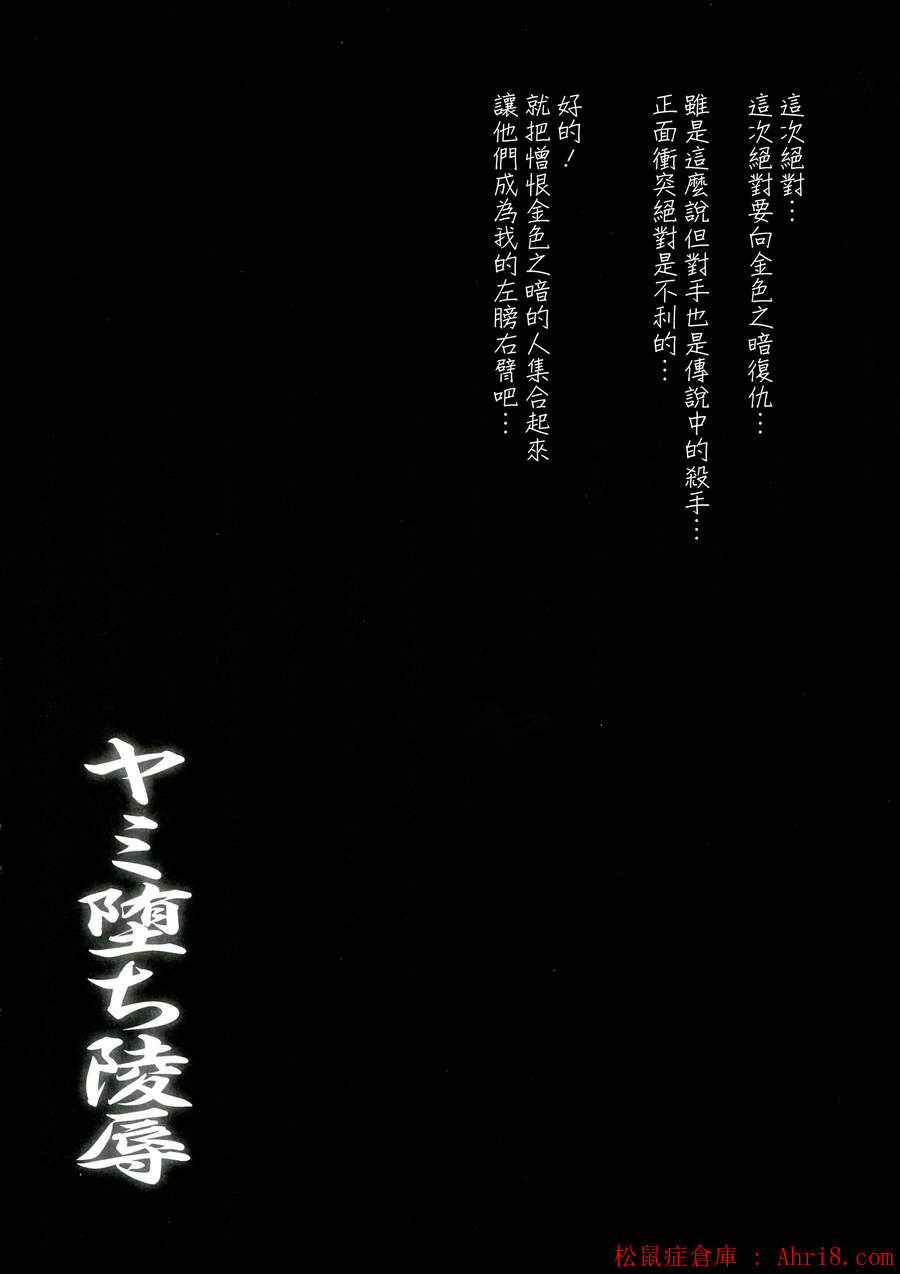 這次絕對…
這次絕對要向金色之暗復仇…
雖是這麼說但對手也是傳說中的殺手…
正面衝突絕對是不利的…
好的！
就把憎恨金色之暗的人集合起來
讓他們成為我的左膀右臂吧…
ヤミ堕ち陵辱
松鼠症倉庫 : Ahri8.com